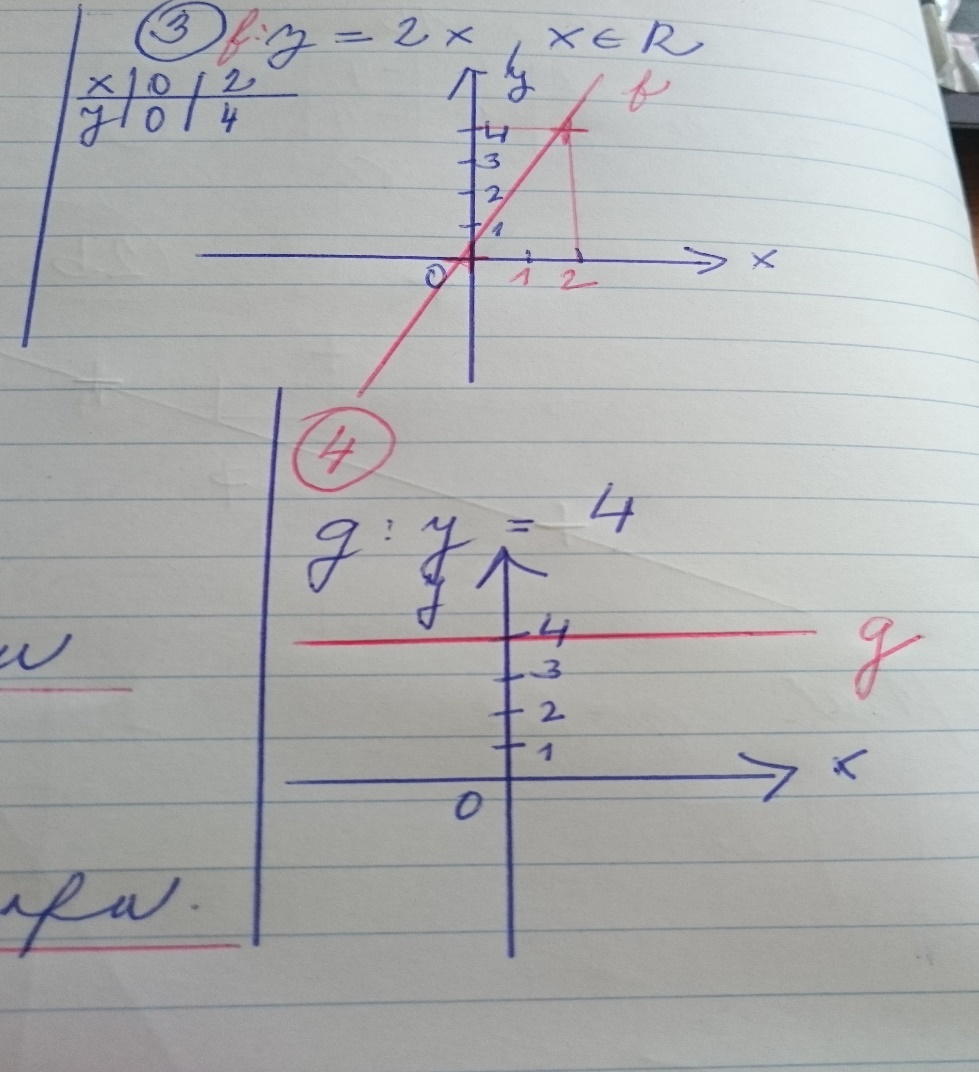 3 f: y = 2x, x ∈ R
x | 0 | 2
y | 0 | 4
y
f
4
3
2
1
0 1 2
x
4
g: y = 4
y
4
g
3
2
1
x
0